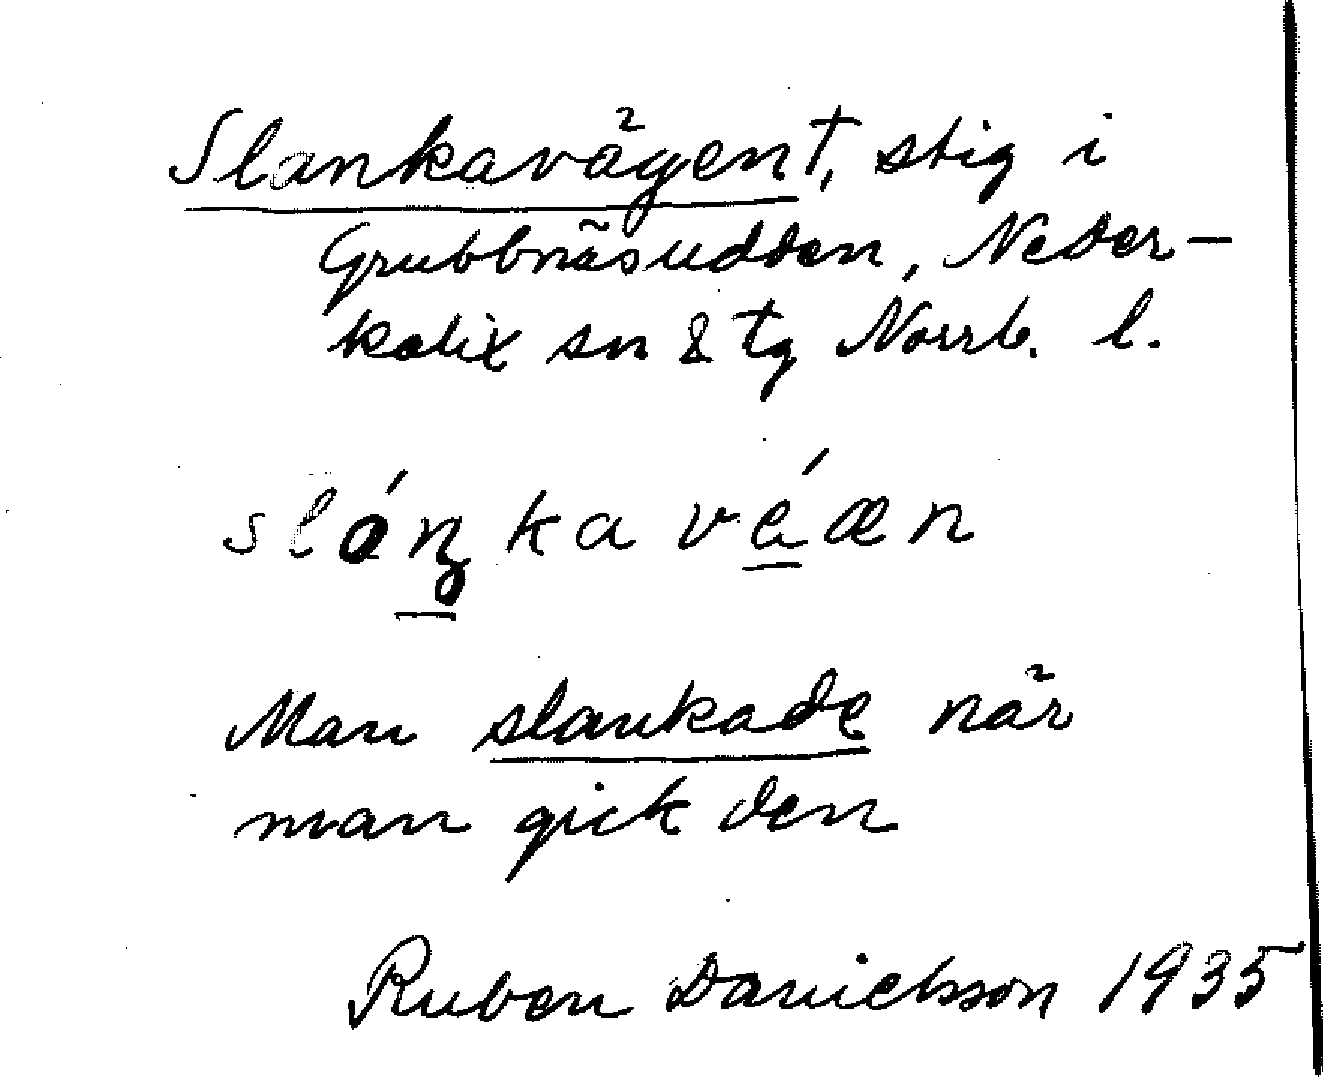 Slankavägen†, stig i
Grubbnäsudden, Neder-
kalix sn & tg Norrb. l.
sláŋkavéæn
Man slankade när
man gick den
Ruben Danielsson 1935